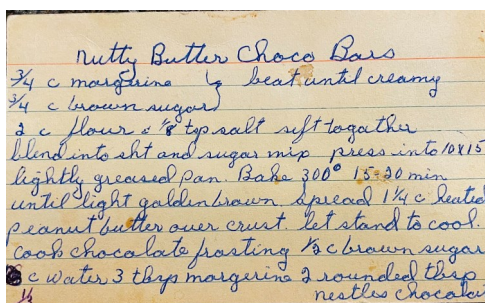 Nutty Butter Choco Bars
3/4 c margerine } beat until creamy
3/4 c brown sugar
2 c flour & 1/8 tsp salt sift togather
blend into sht and sugar mix press into 10x15
lightly greased pan. Bake 300° 15-20 min
until light golden brown. spread 1 1/4 c heated
peanut butter over crust. let stand to cool.
cook chocolate frosting 1/2 c brown sugar
c water 3 tbsp margerine 2 rounded tbsp
1/3 nestles chocolat